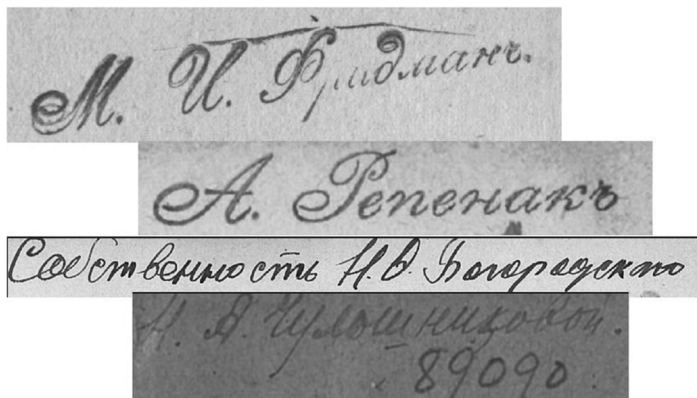 М. И. Фридманъ.
А. Репенакъ
Собственность Н. О. Богородскаго
Н. А. Чулошниковой.
89090